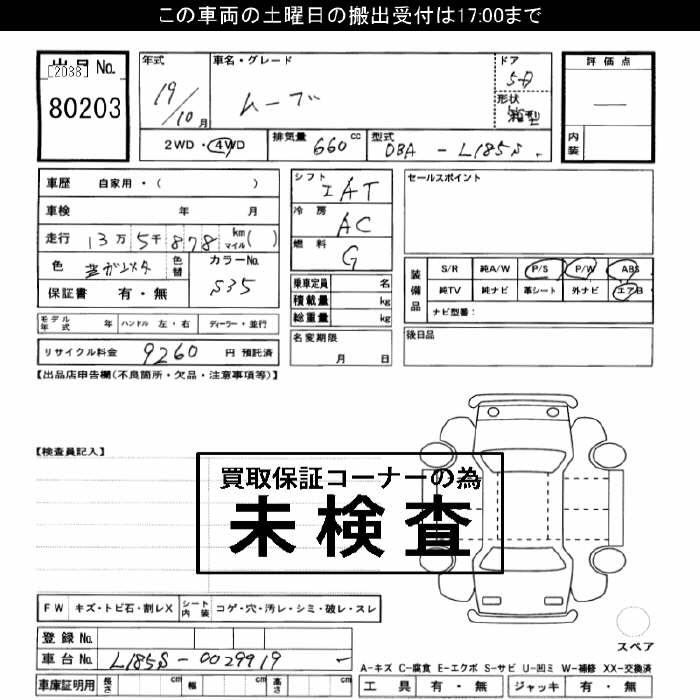 この車両の土曜日の搬出受付は17:00まで
出品No.
[2038]
80203
年式
19/10月
車名・グレード
ムーブ
ドア
5D
形状
箱型
評価点
—
内装
2WD・4WD
排気量 660cc
型式 DBA - L185S
車歴 自家用・( )
車検 年 月
走行 13万5千878kmマイル( )
色
色替
カラーNo.
S35
保証書 有・無
シフト IAT
冷房 AC
燃料 G
乗車定員 名
積載量 kg
総重量 kg
セールスポイント
装備品
S/R 純A/W P/S P/W ABS
純TV 純ナビ 革シート 外ナビ エアB
ナビ型番:
モデル年式 年 ハンドル 左・右 ディーラー・並行
リサイクル料金 9260 円 預託済
名変期限
月 日
後日品
【出品店申告欄(不良箇所・欠品・注意事項等)】
【検査員記入】
買取保証コーナーの為
未検査
FW キズ・トビ石・割レX
シート内装 コゲ・穴・汚レ・シミ・破レ・スレ
登録No.
車台No. L185S-0029919
車庫証明用 長さ cm 幅 cm 高さ cm
スペア
A-キズ C-腐食 E-エクボ S-サビ U-凹ミ W-補修 XX-交換済
工具 有・無 ジャッキ 有・無